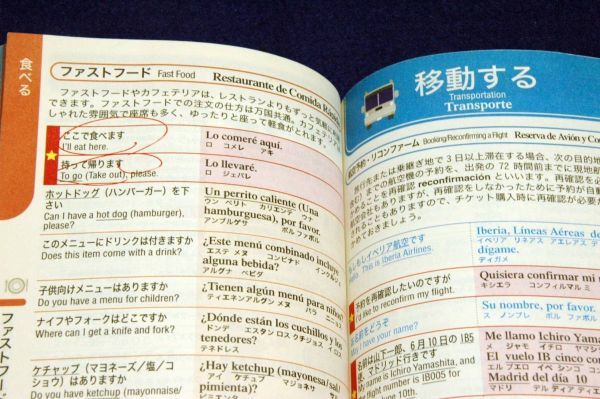 食べる
ファストフード Fast Food Restaurante de Comida
ファストフードやカフェテリアは、レストランよりもずっと気軽に
できます。ファストフードでの注文の仕方は万国共通。カフェテリア
しゃれた雰囲気で座席も多く、ゆったりと座って軽食がとれます。
ここで食べます
I'll eat here.
Lo comeré aquí.
ロ コメレ アキ
持って帰ります
To go (Take out), please.
Lo llevaré.
ロ ジェバレ
ホットドッグ（ハンバーガー）を下
さい
Can I have a hot dog (hamburger),
please?
Un perrito caliente (Una
ウン ペリト カリエンテ ウナ
hamburguesa), por favor.
アンブルゲサ ポル ファボル
このメニューにドリンクは付きますか
Does this item come with a drink?
¿Este menú combinado incluye
エステ メヌ コンビナド インクルジェ
alguna bebida?
アルグナ ベビダ
子供向けメニューはありますか
Do you have a menu for children?
¿Tienen algún menú para niños?
ティエネン アルグン メヌ パラ ニニョス
ナイフやフォークはどこですか
Where can I get a knife and fork?
¿Dónde están los cuchillos y los
ドンデ エスタン ロス クチジョス イ ロス
tenedores?
テネドレス
ケチャップ（マヨネーズ/塩/コ
ショウ）はありますか
Do you have ketchup (mayonnaise/
¿Hay ketchup (mayonesa/sal/
アイ ケチュプ マジョネサ サル
pimienta)?
ピミエンタ
ファストフー
移動する
Transportation
Transporte
確認予約・リコンファーム Booking/Reconfirming a Flight Reserva de Avión y
先または乗継ぎ地で3日以上滞在する場合、次の目的地
までの航空機の予約を、出発の72時間前までに現地航
ことを再確認 reconfirmación といいます。再確認を必
会社もありますが、再確認をしなかったために予約が自動
ることもありますので、チケット購入時に再確認が必要か
ておきましょう。
イベリア航空です
This is Iberia Airlines.
Iberia, Líneas Aéreas de
イベリア リネアス アエレアス デ
dígame.
ディガメ
予約を再確認したいのですが
I'd like to reconfirm my flight.
Quisiera confirmar mi
キシエラ コンフィルマル ミ
お名前をどうぞ
May I have your name?
Su nombre, por favor.
ス ノンブレ ポル ファボル
名前は山下一郎、6月10日の IB5
便、マドリッド行きです
My name is Ichiro Yamashita, and
flight number is IB005 for
June 10th.
Me llamo Ichiro Yamashita
メ ジャモ イチロ
El vuelo IB cinco
エル ブエロ イベ シンコ
Madrid del día 10
マドリド デル ディア